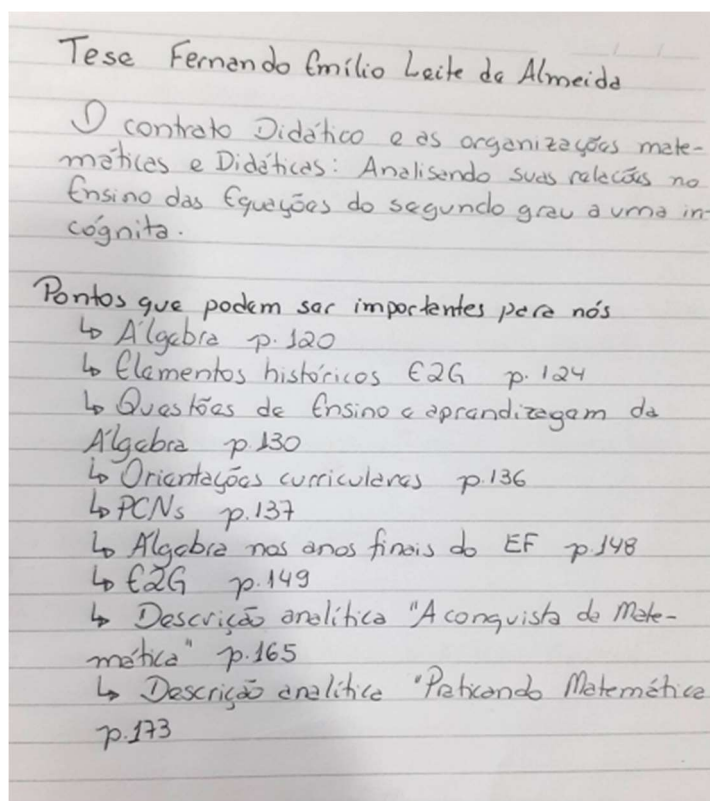 Tese Fernando Emílio Leite de Almeida
O contrato Didático e as organizações mate-
máticas e Didáticas: Analisando suas relações no
Ensino das Equações do segundo grau a uma in-
cógnita.
Pontos que podem ser importantes para nós
↳ Álgebra p. 120
↳ Elementos históricos E2G p. 124
↳ Questões de Ensino e aprendizagem da
Álgebra p. 130
↳ Orientações curriculares p. 136
↳ PCNs p. 137
↳ Álgebra nos anos finais do EF p. 148
↳ E2G p. 149
↳ Descrição analítica "A conquista da Mate-
mática" p. 165
↳ Descrição analítica "Praticando Matemática
p. 173